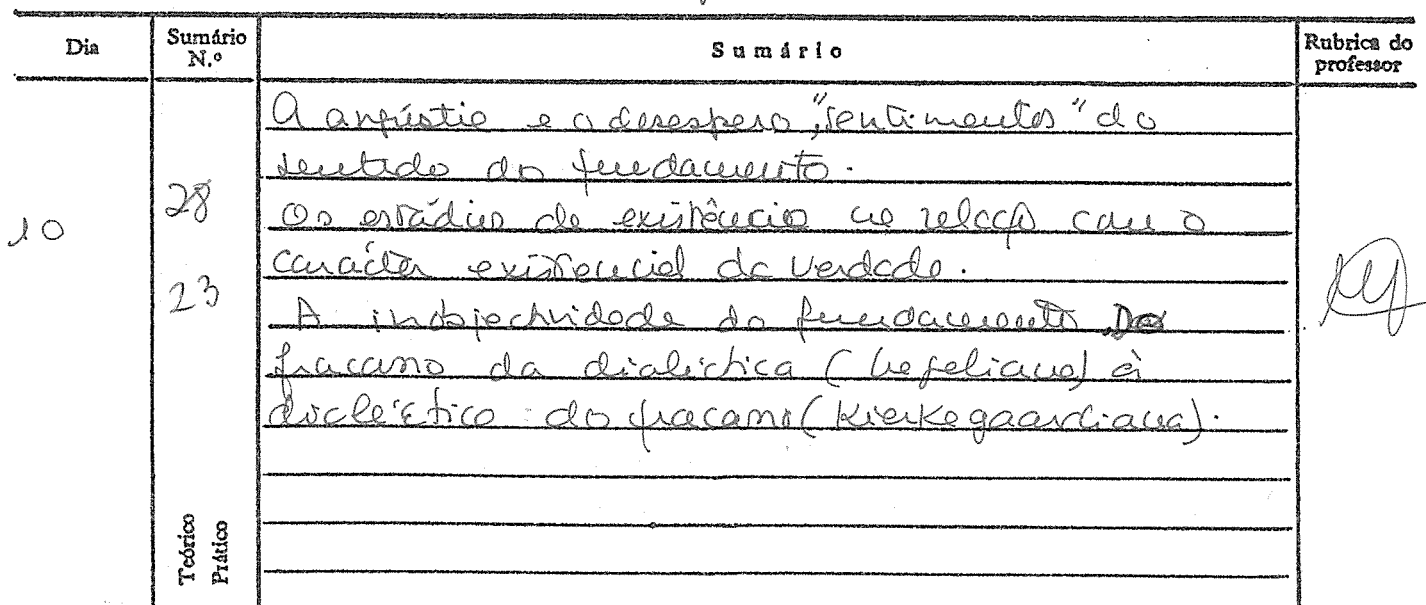 Dia
Sumário N.º
Sumário
Rubrica do professor
10
28
23
A angústia e o desespero, "sentimentos" do
sentido do fundamento.
Os estádios de existência na relação com o
carácter existencial da verdade.
A inobjectividade do fundamento. Do
fracasso da dialéctica (hegeliana) à
dialéctica do fracasso (Kierkegaardiana).
Teórico
Prático